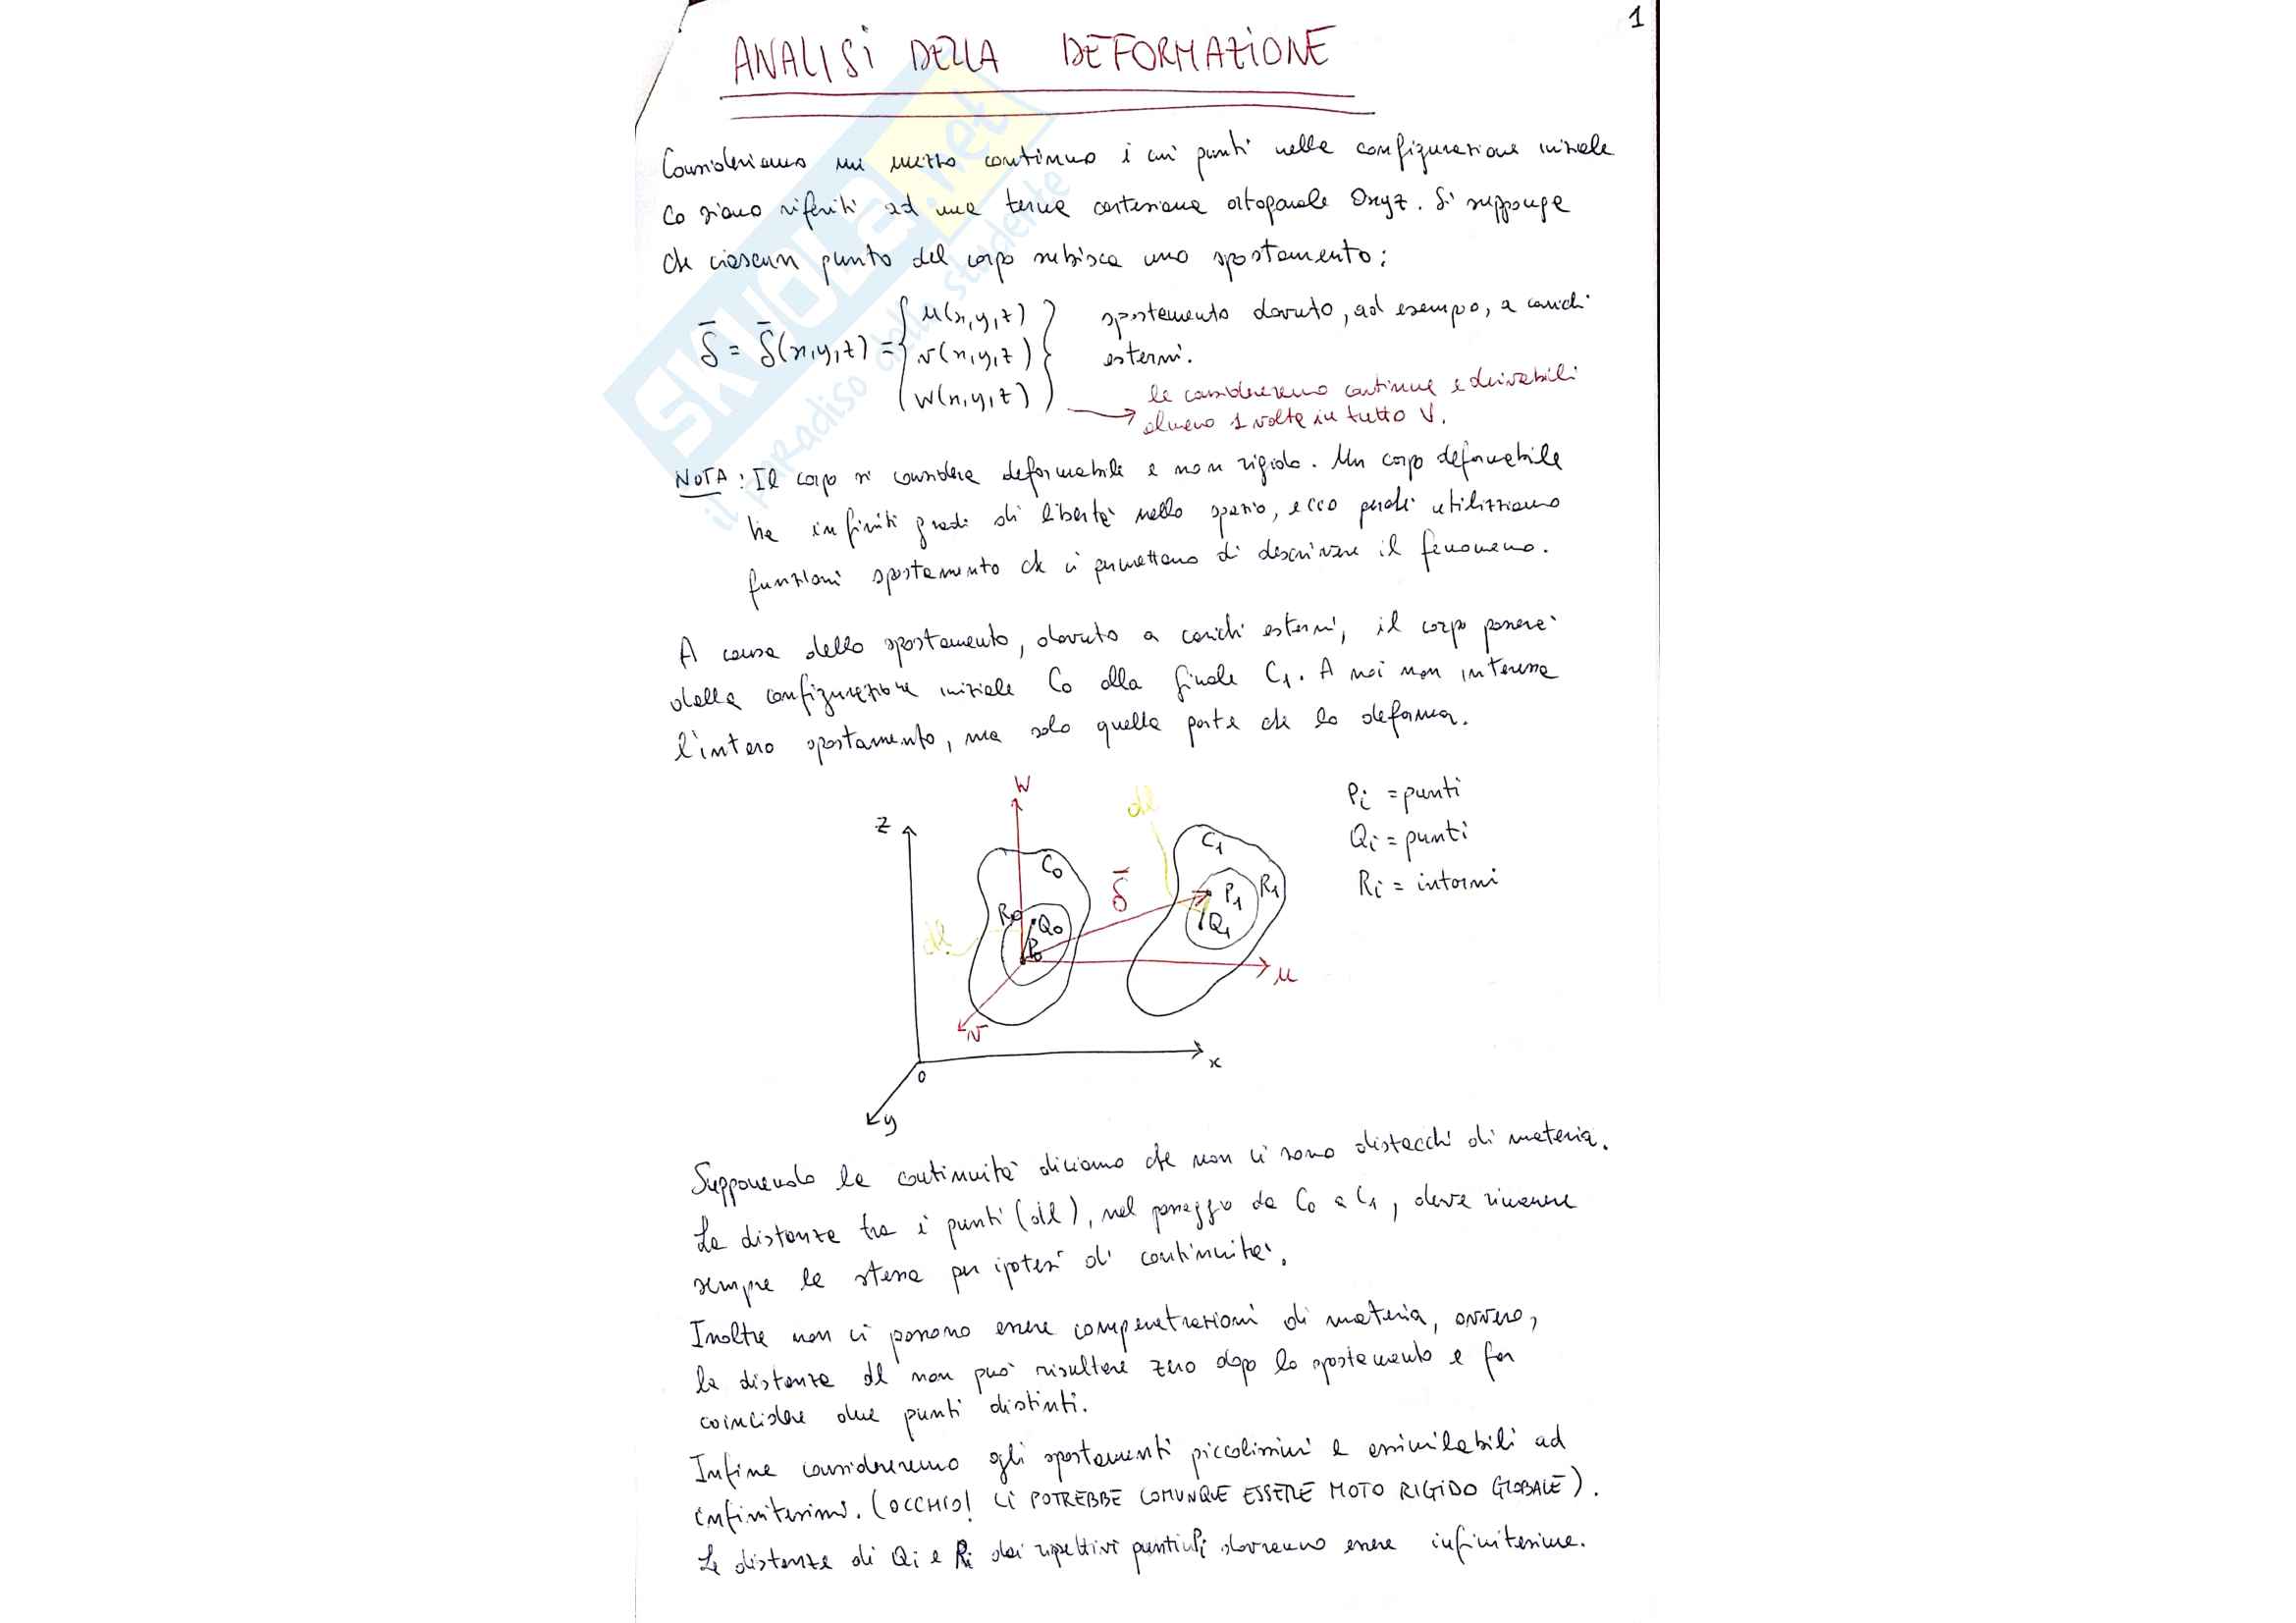 1
ANALISI DELLA DEFORMAZIONE
Consideriamo un mezzo continuo i cui punti nella configurazione iniziale
C0 siano riferiti ad una terna cartesiana ortogonale Oxyz. Si suppone
che ciascun punto del corpo subisca uno spostamento:
δ̅ = δ̅(x,y,z) = { u(x,y,z) v(x,y,z) w(x,y,z) }
spostamento dovuto, ad esempio, a carichi
esterni.
le considereremo continue e derivabili
almeno 1 volta in tutto V.
NOTA: Il corpo si considera deformabile e non rigido. Un corpo deformabile
ha infiniti gradi di libertà nello spazio, ecco perché utilizziamo
funzioni spostamento che ci permettano di descrivere il fenomeno.
A causa dello spostamento, dovuto a carichi esterni, il corpo passerà
dalla configurazione iniziale C0 alla finale C1. A noi non interessa
l'intero spostamento, ma solo quella parte che lo deforma.
W
dl
Pi = punti
z
C1
Qi = punti
C0
δ̅
P1
R1
Ri = intorni
R0
Q0
Q1
dl
P0
u
v
x
0
y
Supponendo la continuità diciamo che non ci sono distacchi di materia.
La distanza tra i punti (dl), nel passaggio da C0 a C1, deve rimanere
sempre la stessa per ipotesi di continuità.
Inoltre non ci possono essere compenetrazioni di materia, ovvero,
la distanza dl non può risultare zero dopo lo spostamento e far
coincidere due punti distinti.
Infine considereremo gli spostamenti piccolissimi e assimilabili ad
infinitesimi. (OCCHIO! CI POTREBBE COMUNQUE ESSERE MOTO RIGIDO GLOBALE).
Le distanze di Qi e Ri dai rispettivi punti Pi dovranno essere infinitesime.
SKUOLA.net
il paradiso dello studente